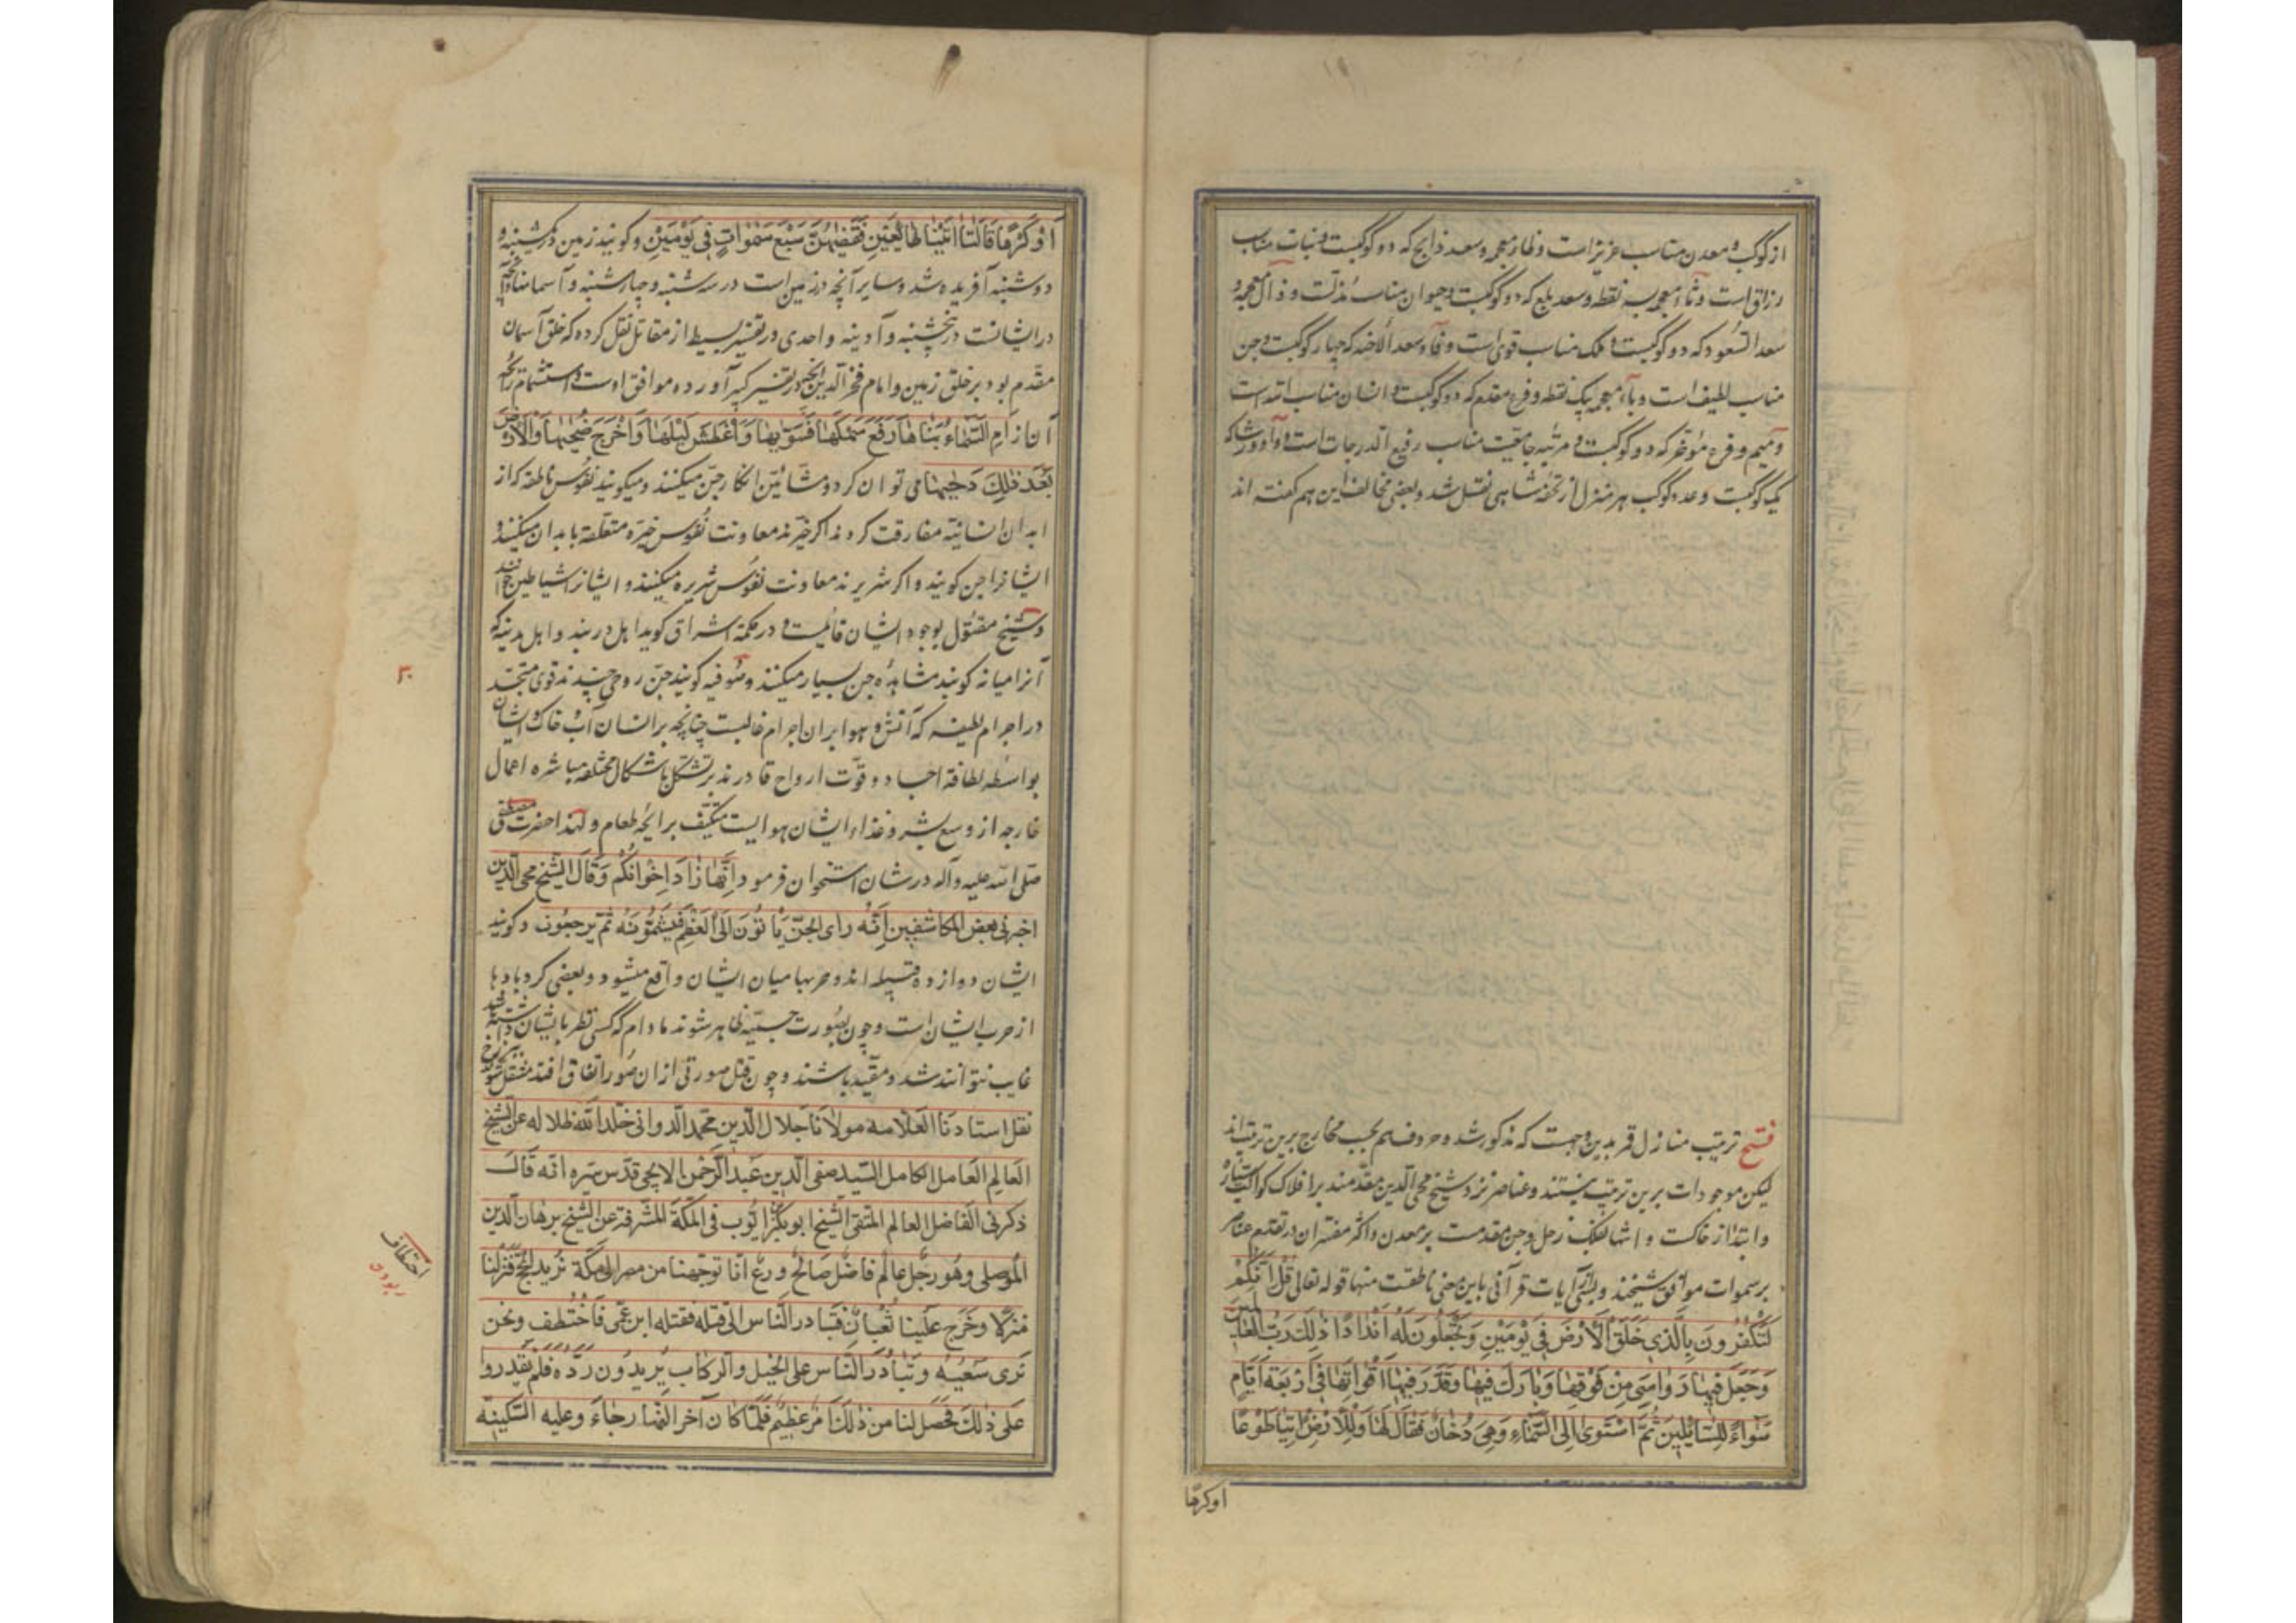 از کوکب و معدن مناسب عزیز است و ظاء معجمه و سعد ذابح که دو کوکبست و نبات مناسب
رزاق است و ثاء معجمه بسه نقطه و سعد بلع که دو کوکبست و حیوان مناسب مذلست و ذال معجمه و
سعد السّعود که دو کوکبست و ملک مناسب قوی است و فا و سعد الاخبیه که چهار کوکبست و جن
مناسب لطیف است و باء معجمه بیک نقطه و فرع مقدم که دو کوکبست و انسان مناسب است
و میم و فرع مؤخر که دو کوکبست و مرتبه جامعیت مناسب رفیع الدرجات است و واو و رشا که
یک کوکبست و عدد کوکب هر منزل از تحفه شاهی نقل شد و بعضی مخالف این هم گفته اند
فتح ترتیب منازل قمر بدین وجهست که مذکور شد و حروف هم بحسب مخارج برین ترتیب اند
لیکن موجودات برین ترتیب نیستند و عناصر نزد شیخ محی الدین مقدمند بر افلاک کواکب سیاره
و ابتدا از خاکست و انتها بفلک زحل و جن مقدمست بر معدن و اکثر مفسران در تقدیم عناصر
بر سموات موافق شیخند و بسی آیات قرآنی باین معنی ناطقست منها قوله تعالی قُلْ اَئِنَّکُمْ
لَتَکْفُرُونَ بِالَّذی خَلَقَ الْاَرْضَ فی یَوْمَیْنِ وَتَجْعَلُونَ لَهُ اَنْدادًا ذٰلِکَ رَبُّ الْعالَمینَ
وَجَعَلَ فیها رَواسِیَ مِنْ فَوْقِها وَبارَکَ فیها وَقَدَّرَ فیها اَقْواتَها فی اَرْبَعَةِ اَیّامٍ
سَواءً لِلسّائِلینَ ثُمَّ اسْتَوٰی اِلَی السَّماءِ وَهِیَ دُخانٌ فَقالَ لَها وَلِلْاَرْضِ ائْتِیا طَوْعًا
اوکرها
اَوْ کَرْهًا قالَتا اَتَیْنا طائِعینَ فَقَضٰیهُنَّ سَبْعَ سَمٰواتٍ فی یَوْمَیْنِ و گویند زمین در یکشنبه و
دوشنبه آفریده شد و سایر آنچه در زمین است در سه شنبه و چهارشنبه و آسمانها و آنچه
در ایشانست در پنجشنبه و آدینه و احدی در تفسیر بسیط از مقاتل نقل کرده که خلق آسمان
مقدم بود بر خلق زمین و امام فخر الدین در تفسیر کبیر آورده موافق اوست و استشمام رائحه
آن از اَمِ السَّماءُ بَنٰاهٰا رَفَعَ سَمْکَهٰا فَسَوّٰیهٰا وَاَغْطَشَ لَیْلَهٰا وَاَخْرَجَ ضُحٰیهٰا وَالْاَرْضَ
بَعْدَ ذٰلِکَ دَحٰیهٰا می توان کرد و مشائین انکار جن میکنند و میگویند نفوس ناطقه که از
ابدان انسانیه مفارقت کردند اگر خیرند معاونت نفوس خیره متعلقه بابدان میکنند و
ایشانرا جن گویند و اگر شریرند معاونت نفوس شریره میکنند و ایشانرا شیاطین خوانند
و شیخ مقتول بوجود ایشان قائلست و در حکمة اشراق گوید اهل دربند و اهل مدینه که
آنرا میانه گویند مشاهدهٔ جن بسیار میکنند و صوفیه گویند جن روحی چندند قوی متجسد
در اجرام لطیفه که آتش و هوا بر ان اجرام غالبست چنانچه بر انسان آب و خاک و ایشان
بواسطه لطافة اجساد و قوّت ارواح قادرند بر تشکل باشکال مختلفه و مباشره اعمال
خارجه از وسع بشر و غذاء ایشان هواییست متکیف برایحه طعام و لهذا حضرت مصطفی
صلی الله علیه وآله در شان استخوان فرمود اِنَّها زادُ اِخْوانِکُمْ وَقالَ الشیخ محی الدین
اخبرنی بعض المکاشفین اِنَّه رای الجنّ یَأتُونَ اِلَی العَظْمِ فَیَشُمُّونَهُ ثُمَّ یرجعُون و گویند
ایشان دوازده قبیله اند و حربها میان ایشان واقع میشود و بعضی گردبادها
از حرب ایشان است و چون بصورت حسیّه ظاهر شوند مادام که کسی نظر بایشان داشته باشد
غایب نتوانند شد و مقید باشند و چون قتل صورتی ازان صور اتفاق افتد منتقل شوند ببرزخ
نقل استادنا العلّامه مولانا جلال الدین محمد الدوانی خلّد الله ظلاله عن الشیخ
العالِم العامل الکامل السّید صفی الدین عبد الرّحمٰن الایجی قدّس سرّه انّه قال
ذکر لی الفاضل العالم المتقی الشیخ ابوبکر ایّوب فی المکّة المشرّفة عن الشیخ برهان الدّین
الموصلی وهو رجل عالم فاضل صالح ورع انّا توجّهنا من مصر الی مکّة نرید الحجّ فنزلنا
منزلًا وخرج علینا ثعبانٌ فتبادر النّاس الی قتله فقتله ابن عمّی فاختُطف ونحن
نری سعیه وتبادر النّاس علی الخیل والرّکاب یریدون ردّه فلم یقدروا
علی ذلک فحصل لنا من ذلک امر عظیم فلمّا کان آخر النّهار جاء وعلیه السّکینه
اختطاف
ربودن